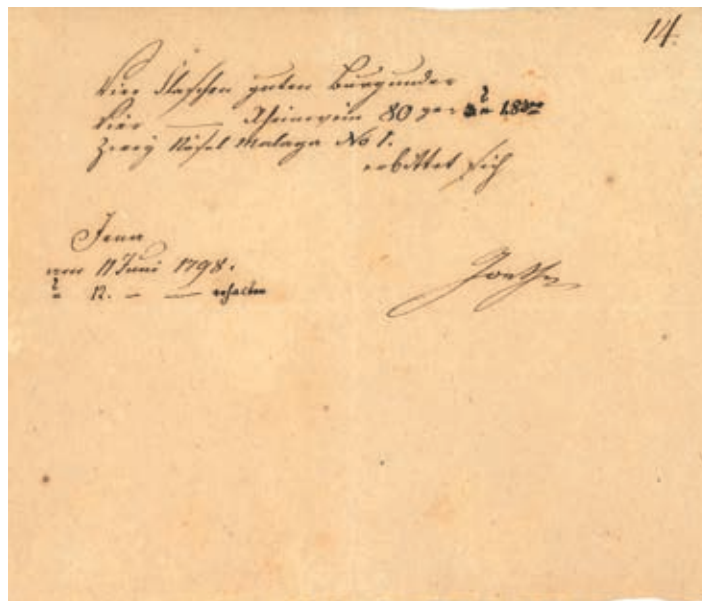 14.
Vier Flaschen guten Burgunder
Vier —— Rheinwein 80 ger
Zwey Nösel Malaga No 1.
erbittet sich
Jena
am 11 Juni 1798.
12. — — erhalten
Goethe